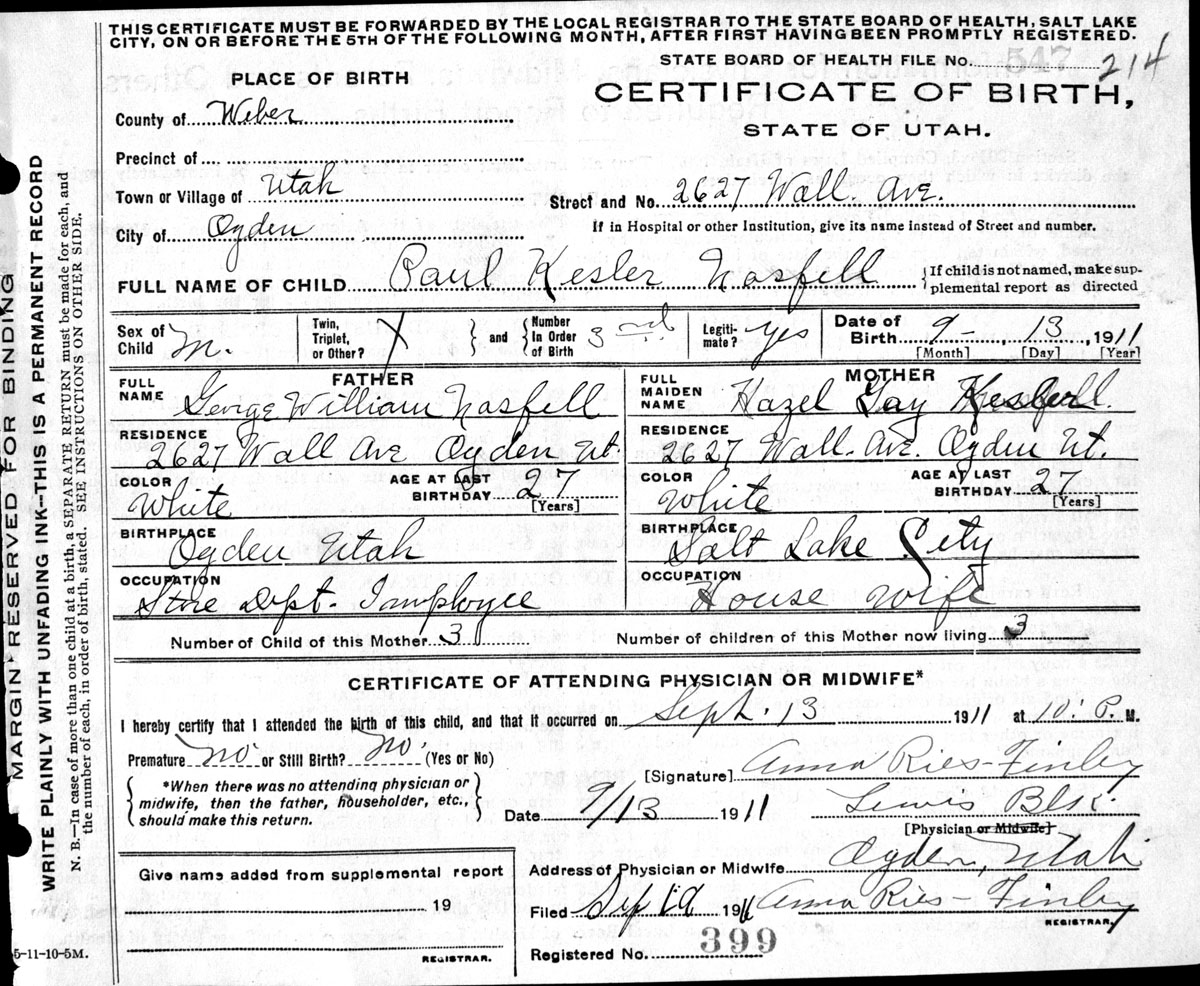 THIS CERTIFICATE MUST BE FORWARDED BY THE LOCAL REGISTRAR TO THE STATE BOARD OF HEALTH, SALT LAKE
CITY, ON OR BEFORE THE 5TH OF THE FOLLOWING MONTH, AFTER FIRST HAVING BEEN PROMPTLY REGISTERED.
STATE BOARD OF HEALTH FILE No. 547 214
PLACE OF BIRTH
CERTIFICATE OF BIRTH,
STATE OF UTAH.
County of Weber
Precinct of
Town or Village of Utah
Street and No. 2627 Wall. Ave.
City of Ogden
If in Hospital or other Institution, give its name instead of Street and number.
FULL NAME OF CHILD Paul Kesler Nasfell
If child is not named, make sup-
plemental report as directed
Sex of Child M.
Twin, Triplet, or Other? X
and
Number In Order of Birth 3rd
Legiti-mate? Yes
Date of Birth 9 - 13, 1911
[Month] [Day] [Year]
FATHER
FULL NAME George William Nasfell
RESIDENCE 2627 Wall Ave Ogden Ut.
COLOR White
AGE AT LAST BIRTHDAY 27
[Years]
BIRTHPLACE Ogden Utah
OCCUPATION Store Dept. Imployee
MOTHER
FULL MAIDEN NAME Hazel Gay
RESIDENCE 2627 Wall. Ave. Ogden Ut.
COLOR White
AGE AT LAST BIRTHDAY 27
[Years]
BIRTHPLACE Salt Lake City
OCCUPATION House Wife
Number of Child of this Mother 3
Number of children of this Mother now living 3
CERTIFICATE OF ATTENDING PHYSICIAN OR MIDWIFE*
I hereby certify that I attended the birth of this child, and that it occurred on Sept. 13 1911 at 10: P. M.
Premature No or Still Birth? No. (Yes or No)
*When there was no attending physician or
midwife, then the father, householder, etc.,
should make this return.
[Signature] Anna Ries-Finley
Date 9/13 1911 Lewis Blk.
[Physician or Midwife]
Address of Physician or Midwife Ogden, Utah
Give name added from supplemental report
19
REGISTRAR.
Filed Sep 19 191 Anna Ries-Finley
REGISTRAR.
Registered No. 399
5-11-10-5M.
MARGIN RESERVED FOR BINDING
WRITE PLAINLY WITH UNFADING INK—THIS IS A PERMANENT RECORD
N. B.—In case of more than one child at a birth, a SEPARATE RETURN must be made for each, and
the number of each, in order of birth, stated. SEE INSTRUCTIONS ON OTHER SIDE.